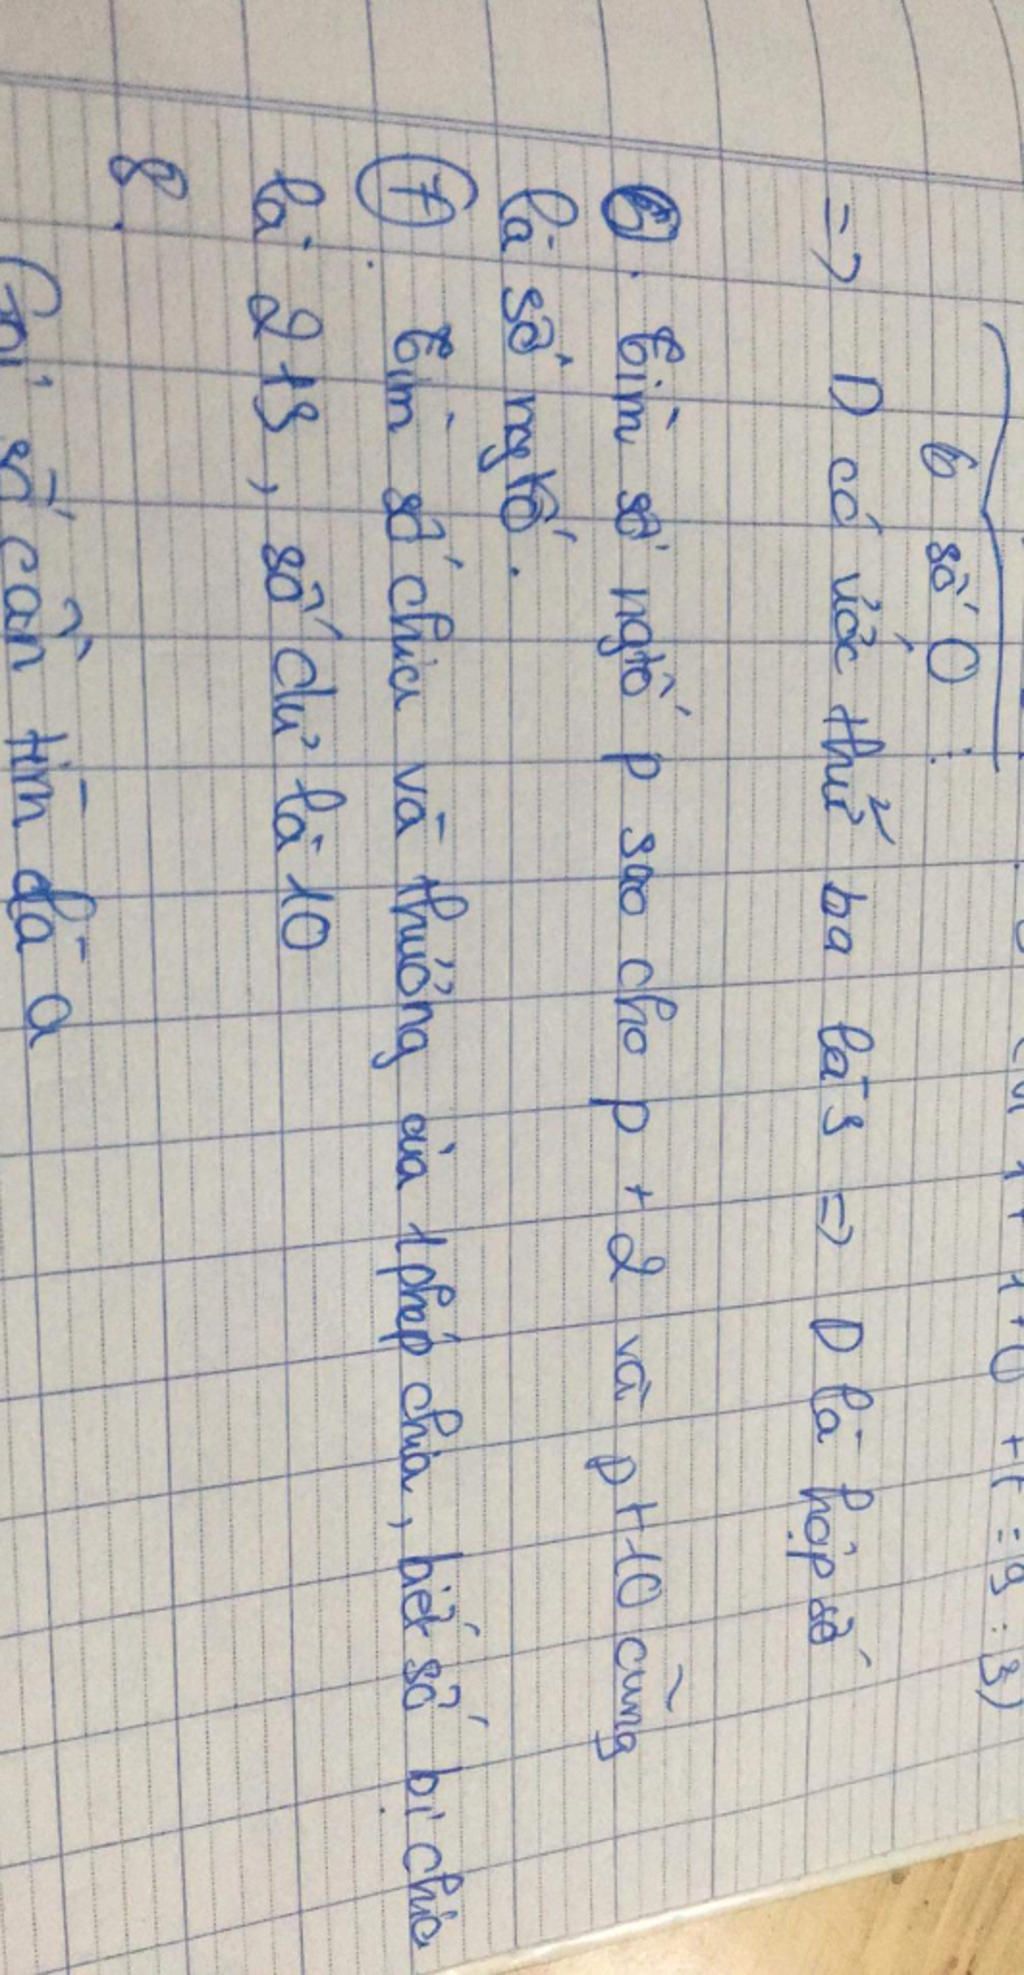 6 số 0
=> D có ước thứ ba là 3 => D là hợp số
6. Tìm số ngtố p sao cho p + 2 và p + 10 cũng
là số ngtố.
7. Tìm số chia và thương của 1 phép chia, biết số bị chia
là 213, số dư là 10
8.
Gọi số cần tìm là a